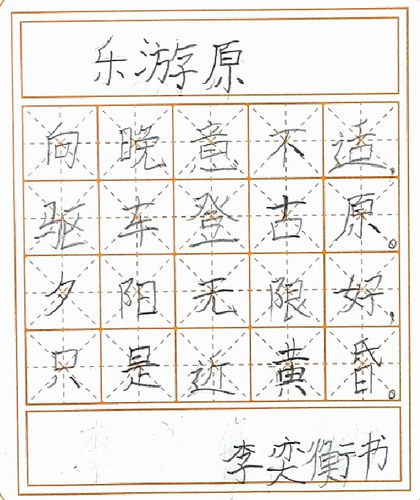 乐游原
向晚意不适，
驱车登古原。
夕阳无限好，
只是近黄昏。
李奕衡书